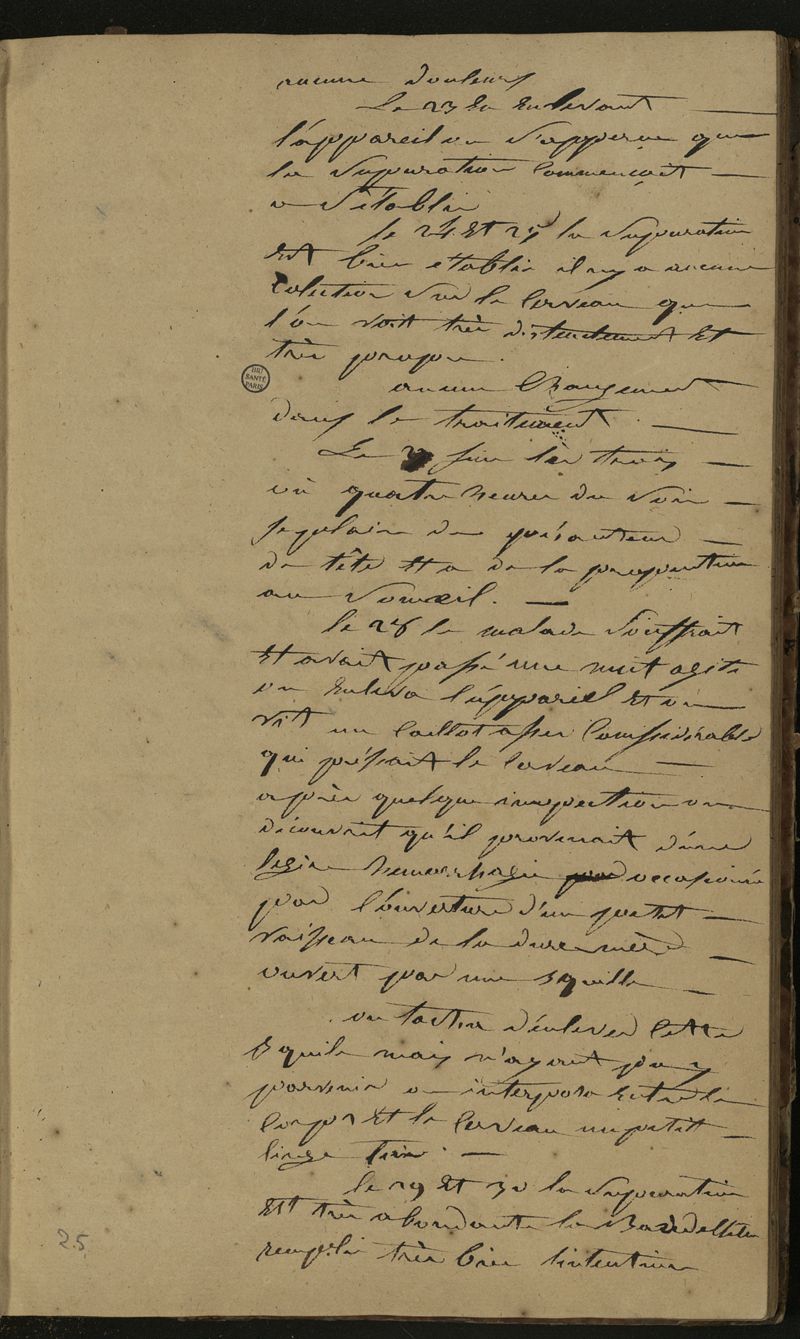 aucune douleurs
Le 23 En Enlevant
l'appareil on s'apperçu que
la Supuration Commençait
a S'établir
le 24 Et 25 la Supuration
Est bien etablie il n'y a aucune
Colection Sur le Cerveau que
l'on voit très distenctement Et
très propre.
BIU
SANTÉ
PARIS
aucun Changement
dans le traitement
Le sur les trois
ou quatre heures du Soir
Se plain de pésanteur
de tête Et a de la propention
au Someil.
le 28 le malade Souffrait
Et avait passé une nuit agité
on Enleva l'appareil Et on
vit un Caillot asser Conssidérable
qui préssait le Cerveau
après quelque inspection on
découvrit qu'il provenait d'une
legère hemorrhagie occasionée
par l'ouverture d'un petit
vaisseau de la dure mère
ouvert par une Squille
on tacha d'enlever Cette
Squile mais n'ayant pu y
parvenir on interposa Entre le
Corps Et le Cerveau un petit
linge fin.
le 29 Et 30 la Supuration
Est très abondante le
remplie très bien l'intention
25